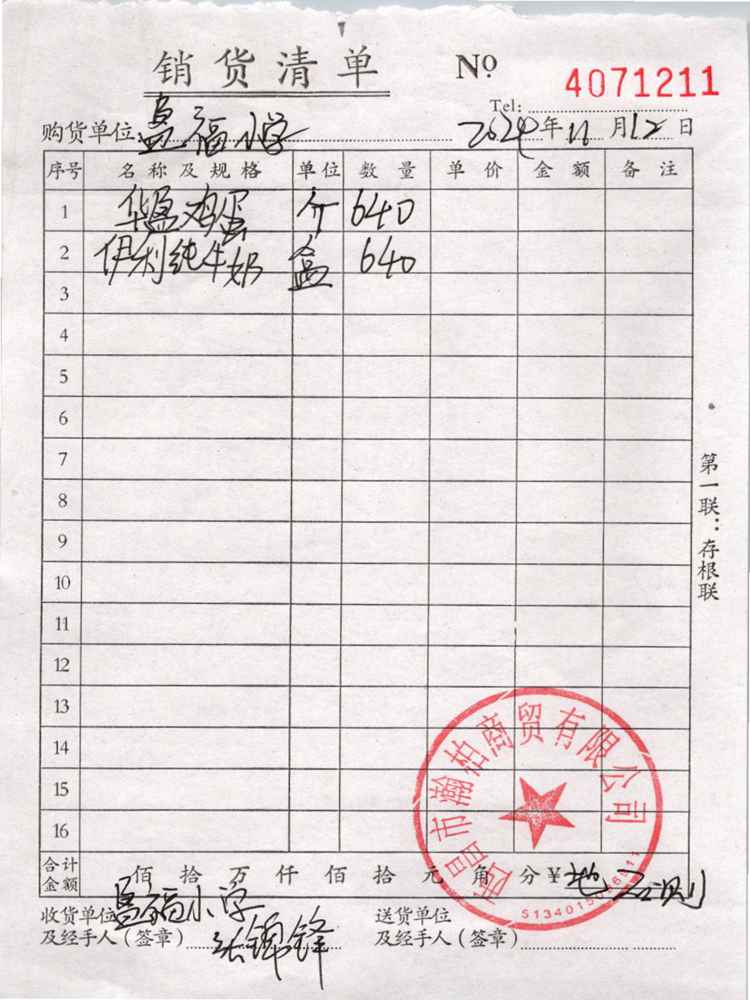 销货清单 Nº 4071211
Tel:
购货单位 盐福小学 2024年11月12日
序号 名称及规格 单位 数量 单价 金额 备注
1 华盈鸡蛋 个 640
2 伊利纯牛奶 盒 640
3
4
5
6
7
8
9
10
11
12
13
14
15
16
合计金额 佰拾万仟佰拾元角分¥
收货单位 福小学 送货单位
及经手人（签章） 张锦锋 及经手人（签章）
第一联：存根联
西昌市瀚柏商贸有限公司